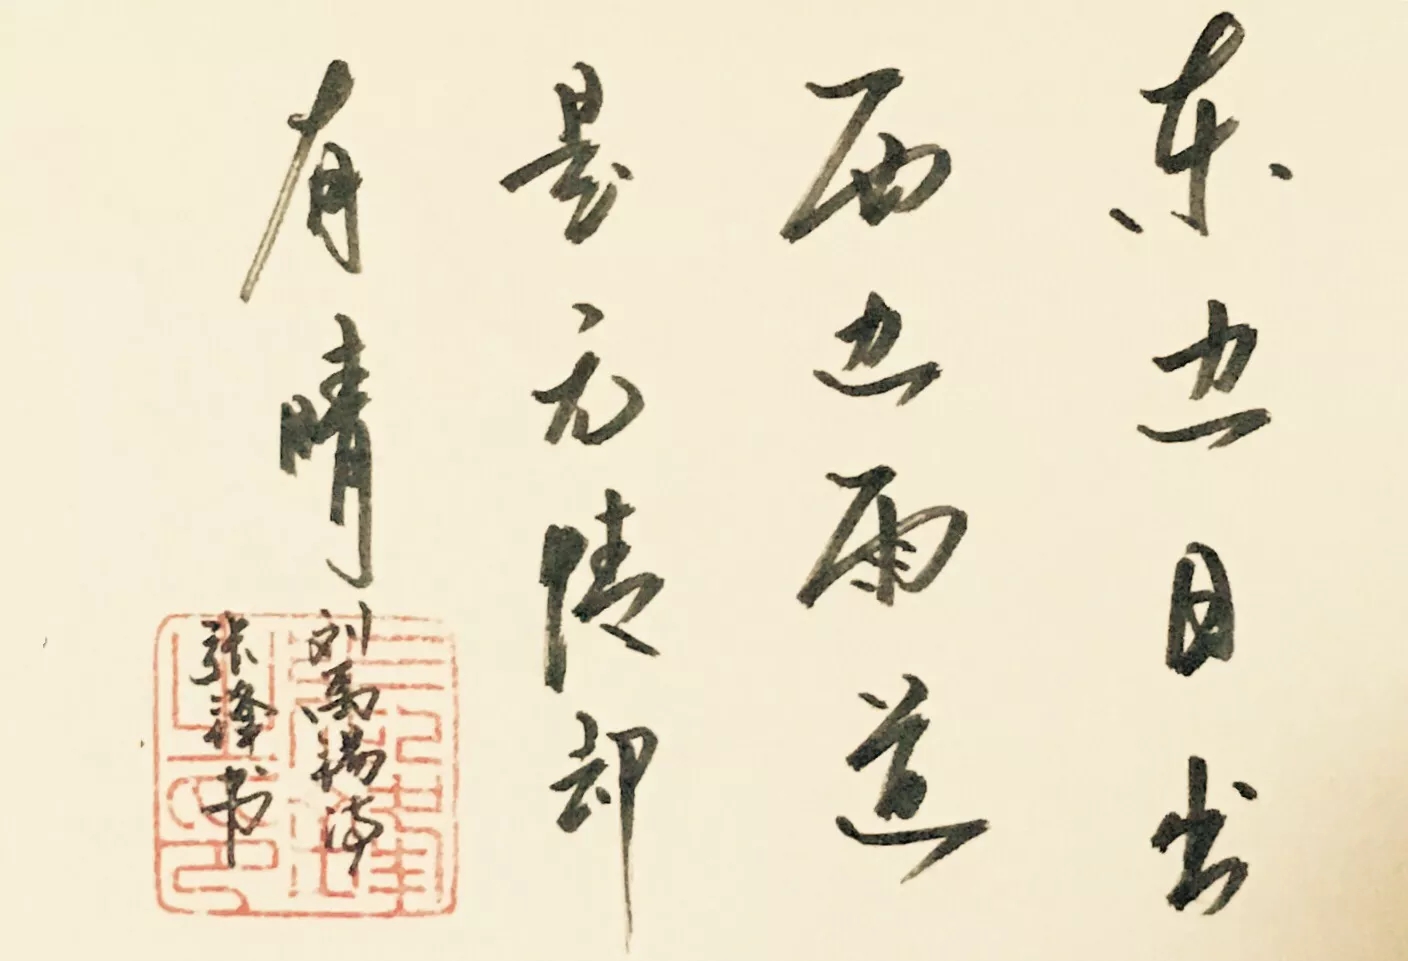 东边日出
西边雨道
是无情却
有晴
刘禹锡诗
张泽书